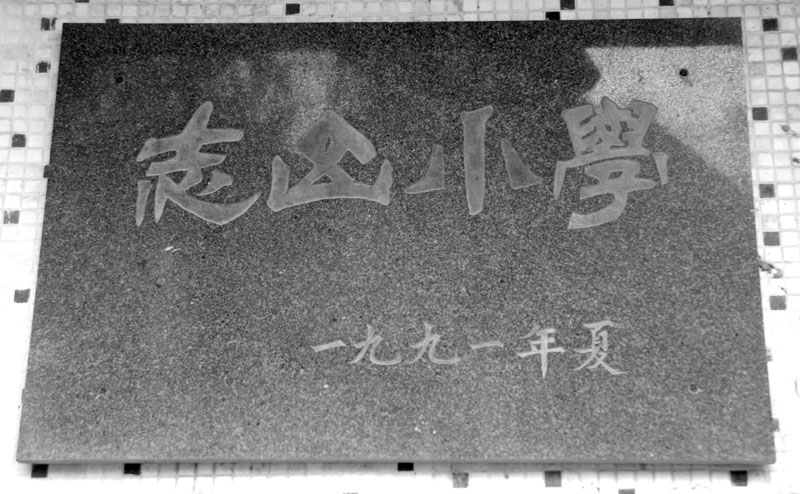 志山小學
一九九一年夏